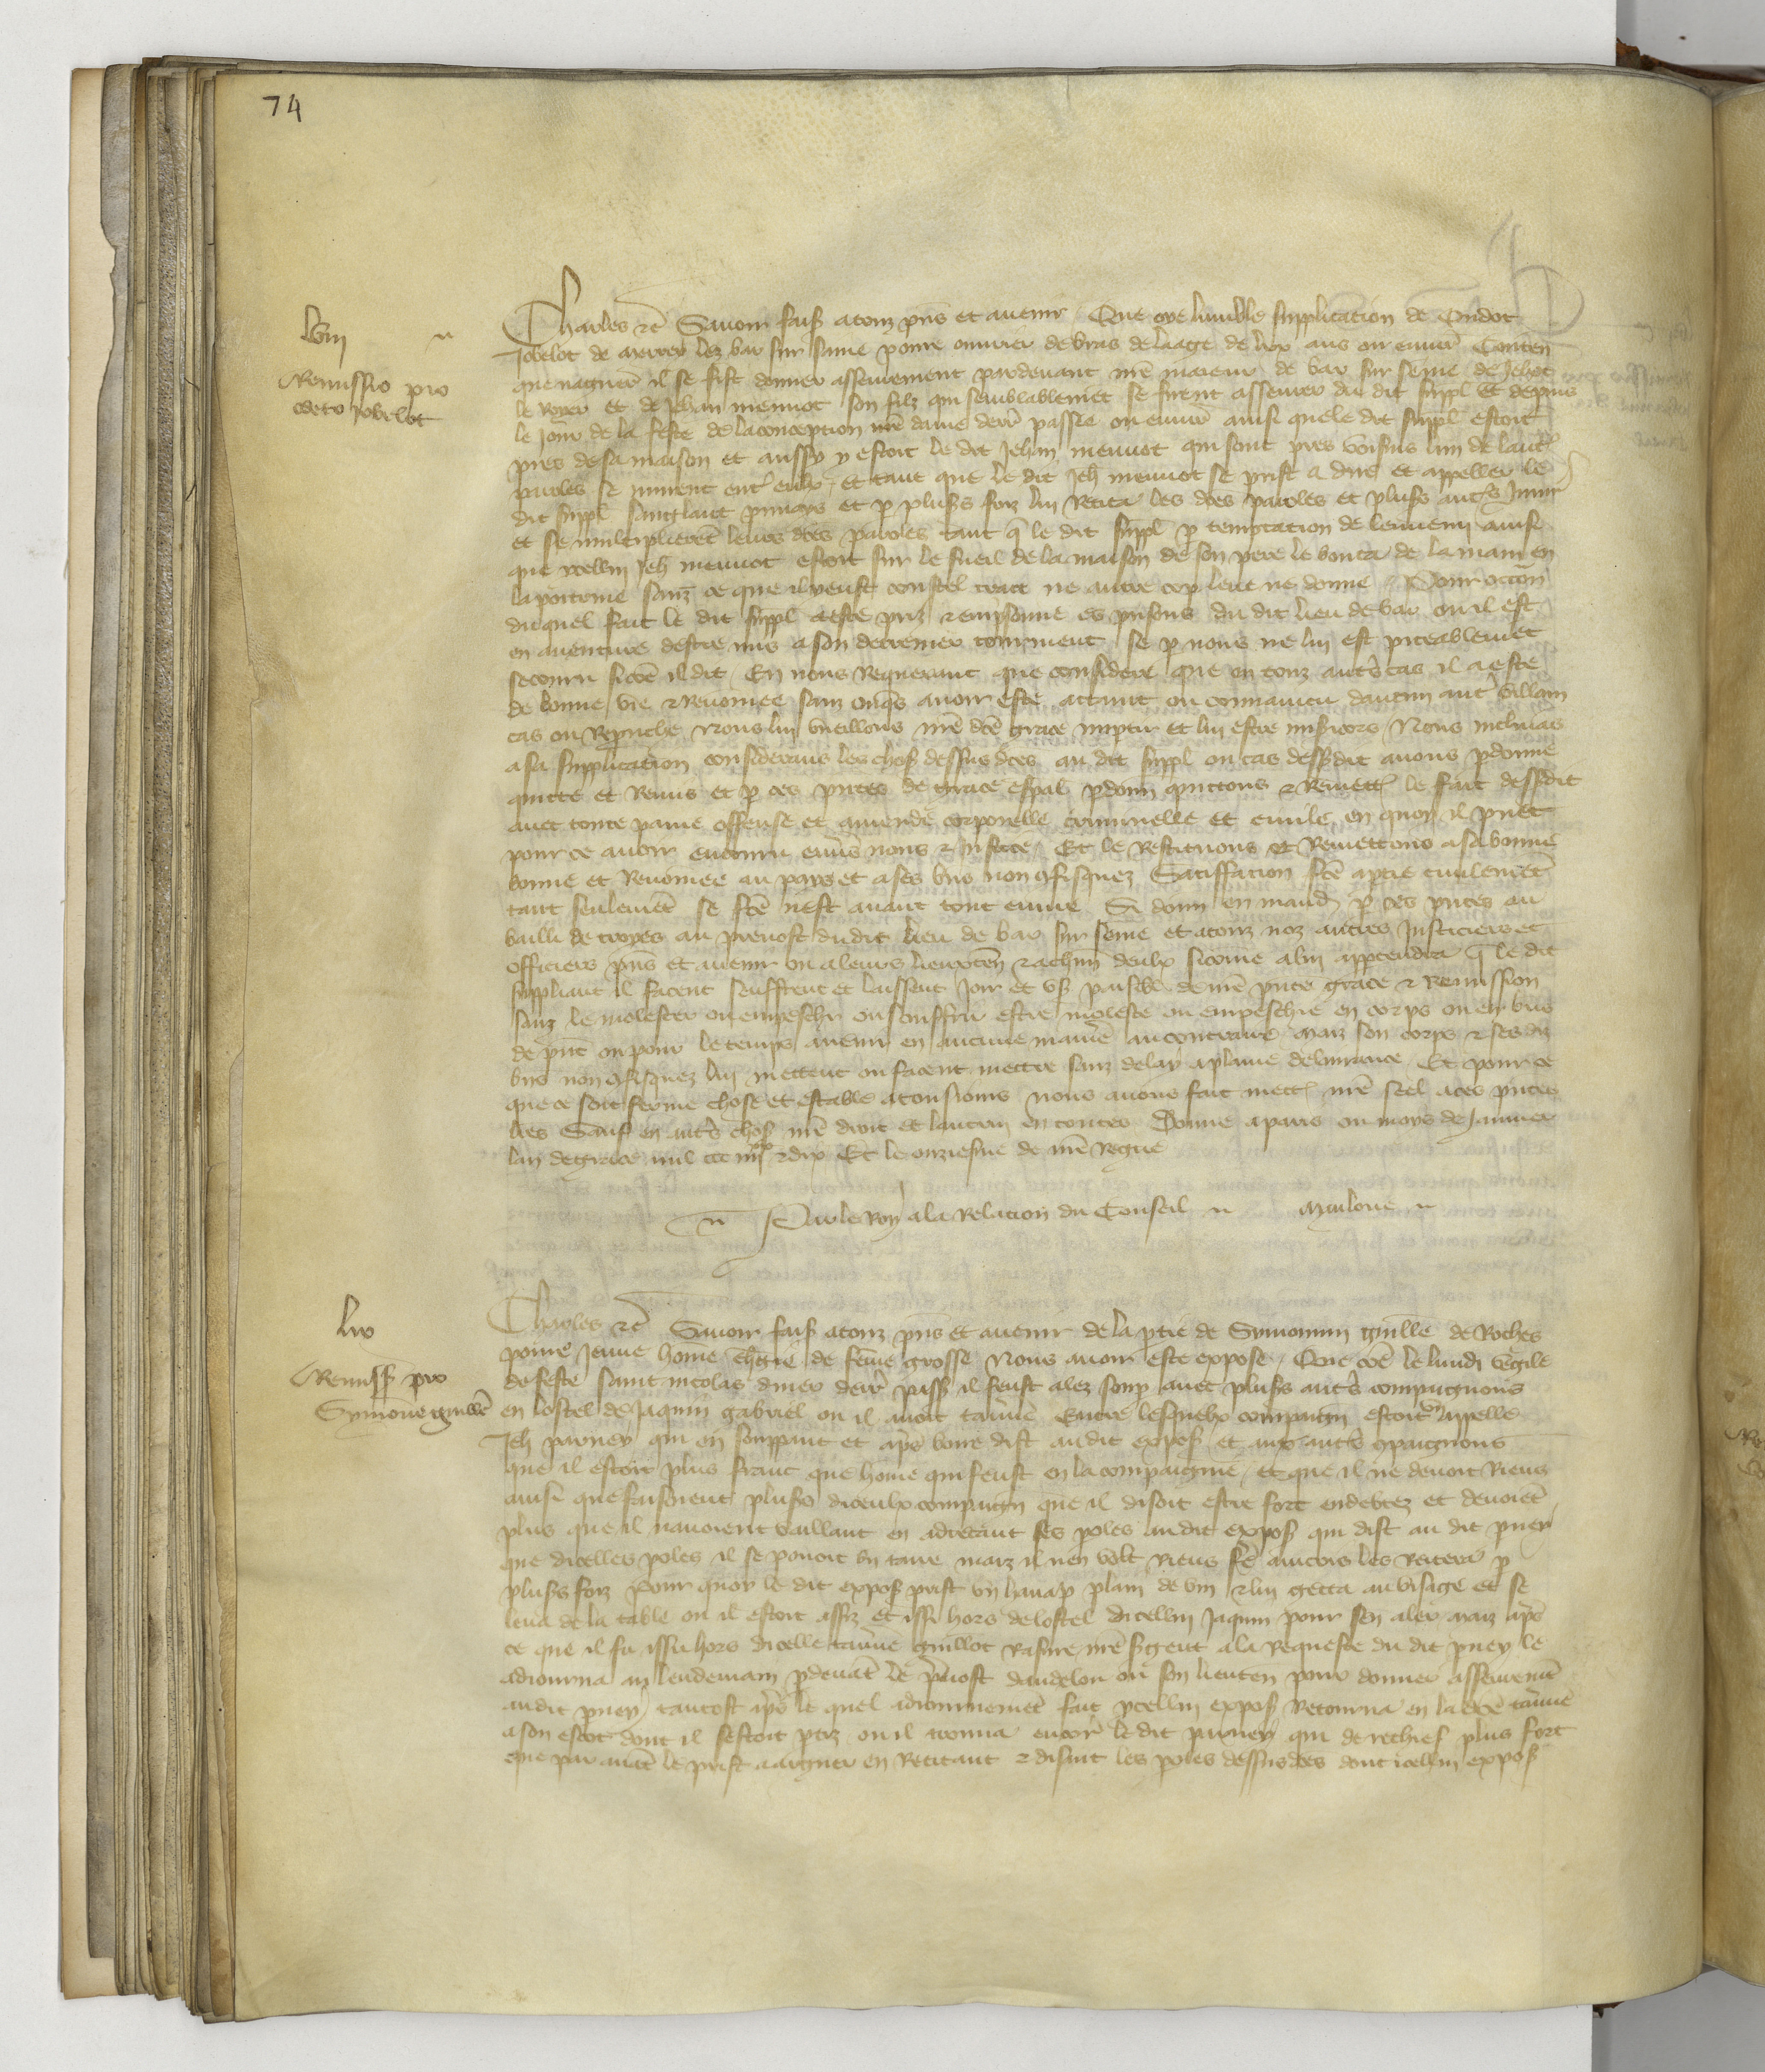 74
lviii
Remissio pro
odeto Jobelot
Charles etc Savoir fais a touz pns et avenir Que oye lumble supplicacion de Oudot
Jobelot de merrey lez bar sur saine povre ouvrier de bras de laage de lx ans ou environ Conten
que naguere il se fist donner asseurement pardevant nre maieur de bar sur seine de Jehan
le Royer et de Jehan mennot son filz qui semblablemet se firent asseurer du dit suppl Et depuis
le jour de la feste de la concepcion nre dame derr passee ou environ ainsi que le dit suppl estoit
pres de sa maison et aussy y estoit le dit Jehan mennot qui sont pres voisins lun de laut
paroles se murent ent eulx Et tant que le dit Jeh mennot se prist a dire et appeller le
dit suppl sanglant punays et p plus foiz lui Recita les des paroles et plus autres Injur
et se multiplieret leurs des paroles tant q le dit suppl p temptacion de lennemi ainsi
que icellui Jeh mennot estoit sur le sueil de la maison de son pere le bouta de la main en
la poitrine sanz ce que il yeust coustel trait ne autre cop leue ne donne Pour occon
du quel fait le dit suppl a este priz et emprisonne es prisons du dit lieu de bar ou il est
en aventure destre mis a son derrenier tourment se p nous ne lui est piteablemet
secouru sicome il dit En nous Requerant que considere que en touz autres cas il a este
de bonne vie et Renomee sanz onqs avoir este attaint ou convaincu daucun aut villain
cas ou Reprouche Nous lui vueillons nre de grace impartir et lui estre misericors Nous inclinans
a sa supplicacion considerans les choses dessus des au dit suppl ou cas dessusdit avons pdonne
quitte et Remis et p ces pntes de grace espal pdonn quittons et Remett le fait dessusdit
avec toute paine offense et amende corporelle criminelle et civile en quoy il puet
pour ce avoir encouru envs nous et justice Et le Restituons et Remettons a sa bonne
bonne et Renomee au pays et a ses bns non cfisquez Satiffacion fce a ptie civilement
tant seulemet se fce nest avant tout euvre Si donn en mand p ces pntes au
bailli de troyes au prevost dudit lieu de bar sur seine et a touz noz autres Justiciers et
officiers pns et avenir ou a leurs lieuxten et a chun deulx sicome a lui apptendra q le dit
suppliant il facent seuffrent et laissent joir et user paisible de nre pnte grace et Remission
sanz le molester ou empeschr ou souffrir estre moleste ou empeschie en corps ou en bns
de pnt ou pour le temps avenir en aucune maniere au contraire Maiz son corps et ses diz
bns non cfisquez lui mettent ou facent mettre sanz delay a plaine delivrance Et pour ce
que ce soit ferme chose et estable a tousiours nous avons fait mett nre seel a ces pntes
lres Sauf en autres choses nre droit et lautrui en toutes Donne a paris ou moys de Janvier
lan de grace mil ccc iiiixx et dix Et le onziesme de nre Regne
Par le Roy a la Relacion du Conseil Maulone
lix
Remiss pro
Symone guillet
Charles etc Savoir fais a touz pns et avenir de la ptie de Symonnin guille de Roches
povre Jeune home chargie de feme grosse Nous avoir este expose Que come le lundi vegile
de feste saint nicolas diver derr passe il feust alez soup avec pluss autres compaignons
en lostel de Jaquin gabriel ou il avoit taverne Entre lesquelx compaign estoit un Appelle
Jeh parney qui en souppant et apres boire dist au dit expos et aux autres cpaignons
que il estoit plus franc que home qui feust en la compaignie et que il ne devoit Riens
ainsi que faisoient pluss diceulx compaign que il disoit estre fort endebtez et devoiet
plus que il navoient vaillant en adrecant ses poles au dit expos qui dist au dit pney
que dicelles poles il se povoit bn taire maiz il nen volt Riens fe aincois les Recitera p
pluss foiz Pour quoy le dit expos prist un hanap plain de vin et lui getta au visage et se
leva de la table ou il estoit assiz et issi hors de lostel dicellui Jaquin pour sen aler maiz apres
ce que il fu issu hors dicelle taverne guillot Rasure nre sgent a la Requeste du dit pney le
adiourna au lendemain pdevat le pvost dandelou ou son lieuten pour donner asseuremet
au dit pney tantost apres le quel adiournemet fait ycellui expos Retourna en la de taverne
a son escot dont il sestoit ptiz ou il trouva encore le dit parney qui de rechief plus fort
que par avat le prist a arguer en Recitant et disant les poles dessusdes dont icellui expos